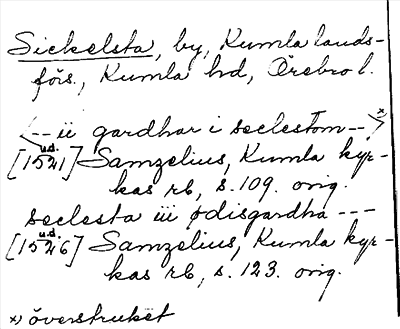 Sickelsta, by, Kumla lands-
förs., Kumla hd, Örebro l.
<-- ii gardhar i seclestom --> x)
[1521] u.d. Samzelius, Kumla kyr-
kas rb, s. 109. orig.
seclesta iii ødisgardha ---
[1526] u.d. Samzelius, Kumla kyr-
kas rb, s. 123. orig.
x) överstruket